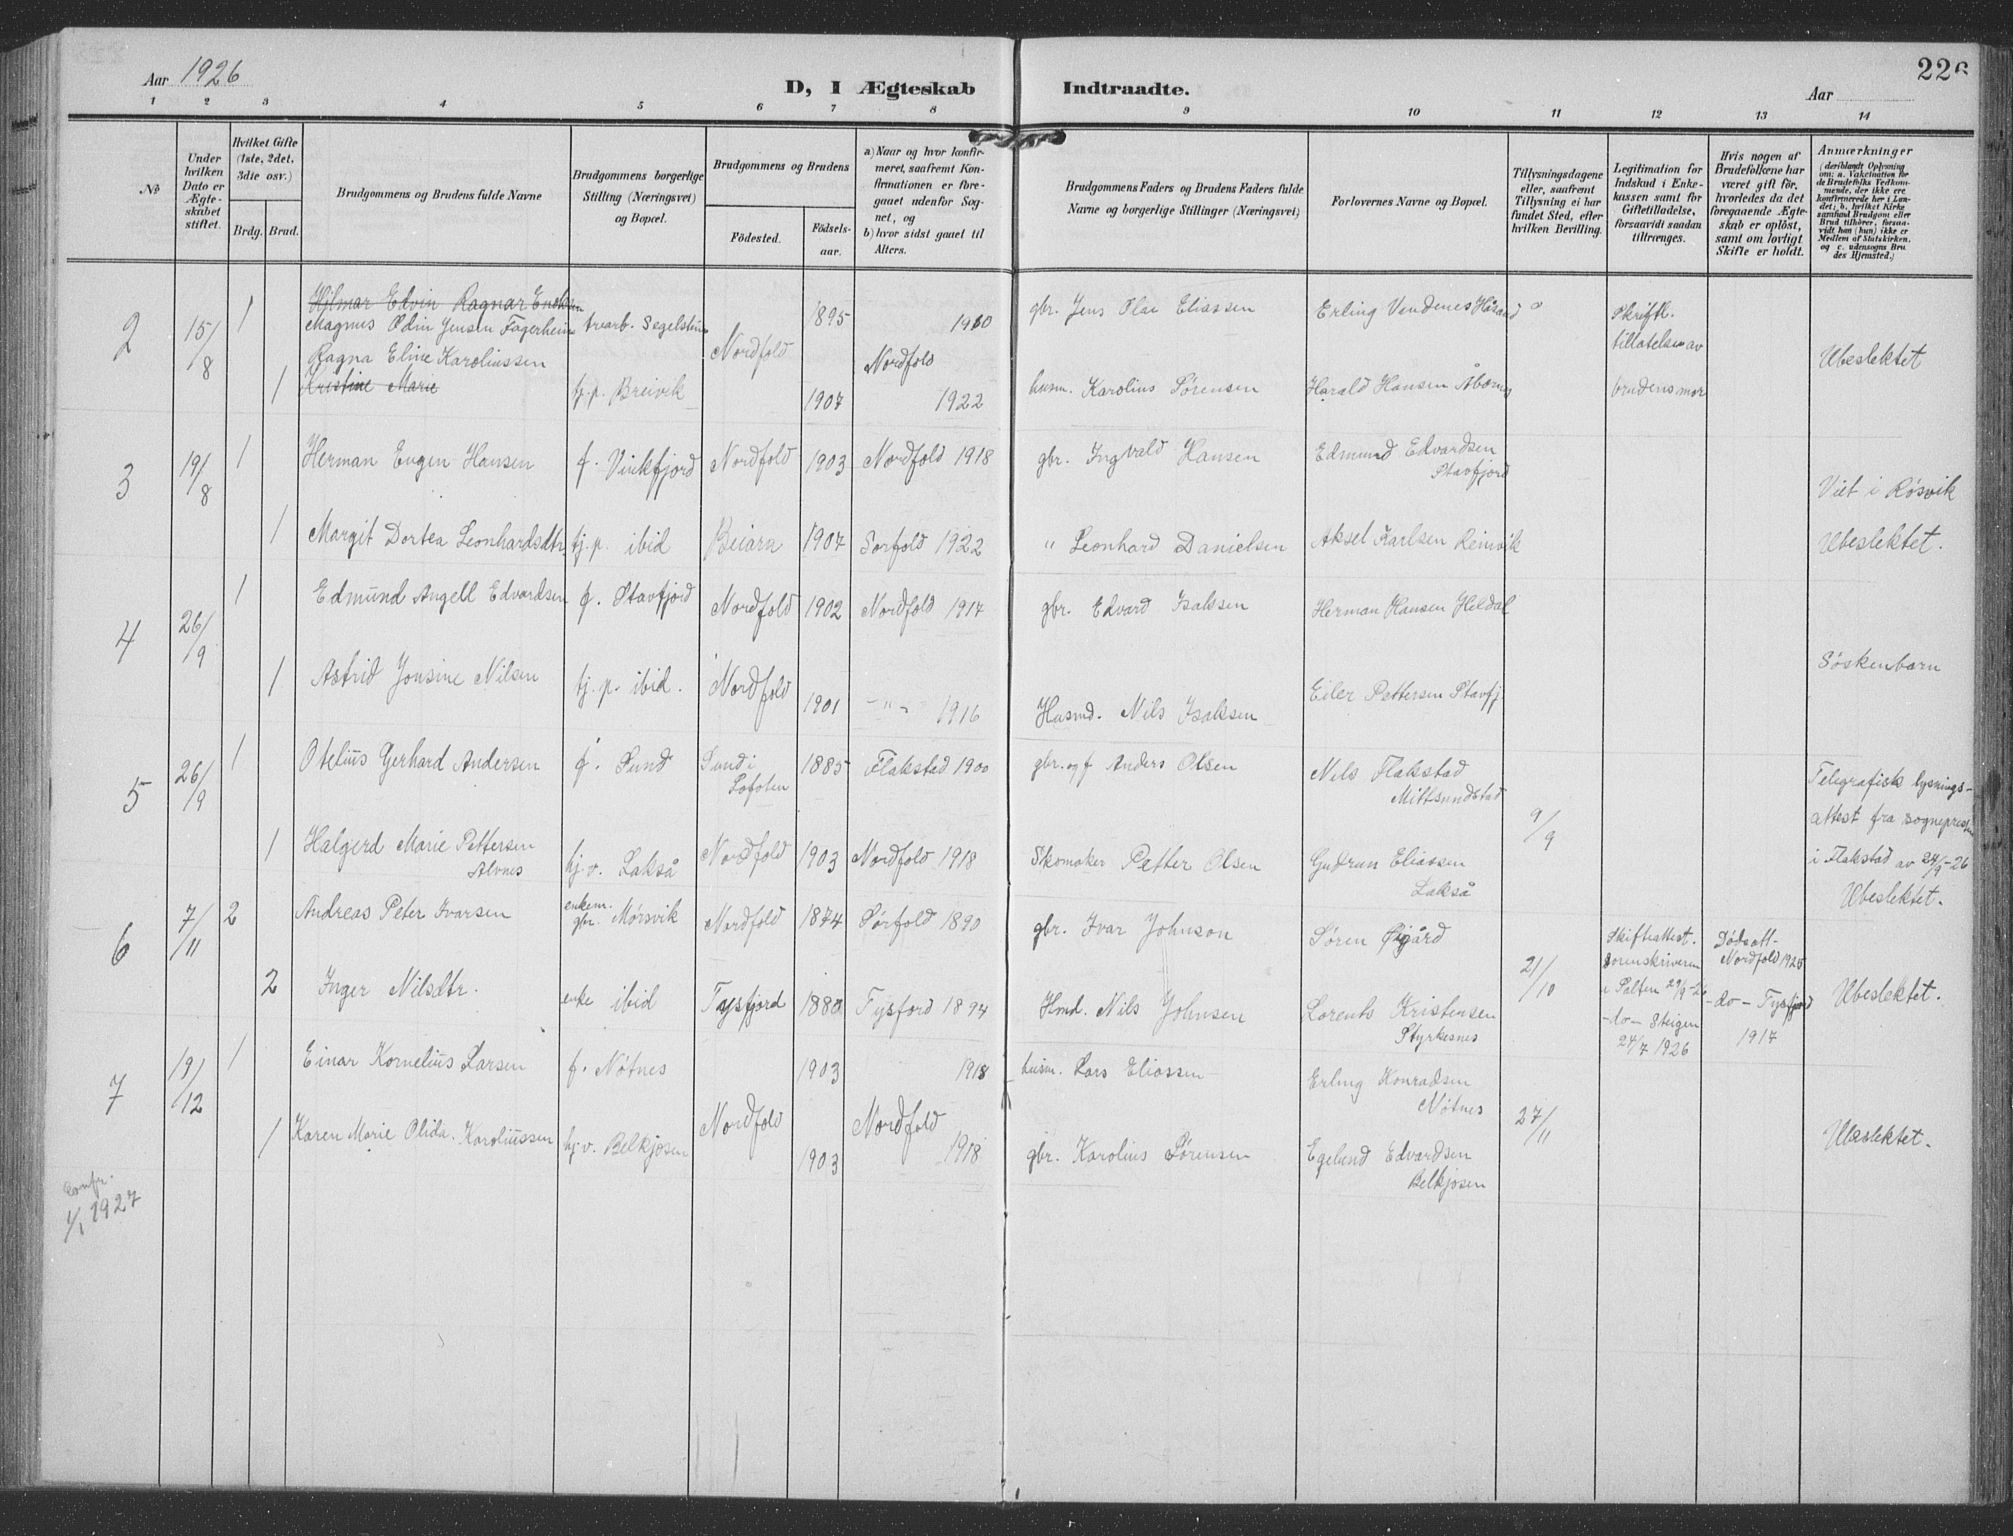 Aar 1926
D, I Ægteskab Indtraadte.
226
Aar
1 2 3 4 5 6 7 8 9 10 11 12 13 14
No
Under hvilken Dato er Ægteskabet stiftet.
Hvilket Gifte (1ste, 2det, 3die osv.)
Brdg. Brud.
Brudgommens og Brudens fulde Navne
Brudgommens borgerlige Stilling (Næringsvei) og Bopæl.
Brudgommens og Brudens
Fødested.
Fødselsaar.
a) Naar og hvor konfirmeret, saafremt Konfirmationen er foregaaet udenfor Sognet, og
b) hvor sidst gaaet til Alters.
Brudgommens Faders og Brudens Faders fulde Navne og borgerlige Stillinger (Næringsvei)
Forlovernes Navne og Bopæl.
Tillysningsdagene eller, saafremt Tillysning ei har fundet Sted, efter hvilken Bevilling.
Legitimation for Indskud i Enkekassen samt for Giftetilladelse, forsaavidt saadan tiltrænges.
Hvis nogen af Brudefolkene har været gift før, hvorledes da det foregaaende Ægteskab er opløst, samt om lovligt Skifte er holdt.
Anmærkninger
(deriblandt Oplysning om: a. Vakcination for de Brudefolks Vedkommende, der ikke ere konfirmerede her i Landet; b. hvilket Kirkesamfund Brudgom eller Brud tilhører, forsaavidt han (hun) ikke er Medlem af Statskirken, og c. udensogns Brudes Hjemsted.)
2 15/8 1
Hjlmar Edvin Ragnar
Magnus Odin Jensen Fagerheim
1895 1910
gbr. Jens Olai Eliassen
Skriftl. tillatelse av brudens mor
Ragna Eline Karoliussen
Kristine Marie
Nordfold
Nordfold
Ubeslektet
1 tj.p. Breivik 1907 1922
husm. Karolius Sørensen
Harald Hansen
3 19/8 1 Herman Eugen Hansen
f. Vinkfjord Nordfold 1903 Nordfold 1918
gbr. Ingvald Hansen
Edmund Edvardsen
Stavfjord
Viet i Røsvik
1 Margit Dortea Leonhardsdtr
tj.p. ibid Beiarn 1907 Sørfold 1922
" Leonhard Danielsen
Aksel Karlsen Reinvik
Ubeslektet.
4 26/9 1 Edmund Angell Edvardsen
f. Stavfjord Nordfold 1902 Nordfold 1917
gbr. Edvard Isaksen
Herman Hansen Heldal
1 Astrid Jonsine Nilsen
tj.p. ibid. Nordfold 1901 - " - 1916
Husmd. Nils Isaksen
Eiler Pettersen Stavfj
Søskenbarn
5 26/9 1 Otelius Gerhard Andersen
f. Sund Sund i Lofoten 1885 Flakstad 1900
gbr. og f Anders Olsen
Nils Flakstad
Mittsundstad
9/9
Telegrafisk lysnings-
attest fra sogneprest
i Flakstad av 24/9-26
Ubeslektet.
1 Halgerd Marie Pettersen
Alvnes
hj.v. Lakså Nordfold 1903 Nordfold 1918
Skomaker Petter Olsen
Gudrun Eliassen
Lakså
6 7/11 2 Andreas Peter Ivarsen
enkem. gbr. Mørsvik Nordfold 1874 Sørfold 1890
gbr. Ivar Johnson
Søren Øigård
21/10
Skifteattest.
Sorenskriveren
i Salten 29/9-26
Dødsatt-
Nordfold 1925
2 Inger Nilsdtr.
enke ibid Tysfjord 1880 Tysfjord 1894
Hmd. Nils Johnsen
Lorents Kristensen
Styrkesnes
-do- Steigen
24/7 1926
-do- Tysfjord
1917
Ubeslektet.
7 19/12 1 Einar Kornelius Larsen
f. Nötnes 1903 1918
husm. Lars Eliassen
Erling Konradsen
Nötnes
27/11
Nordfold
Nordfold
1 Karen Marie Olida Karoliussen
hj.v. Belkjosen 1903 1918
gbr. Karolius Sørensen
Egelund Edvardsen
Belkjosen
Ubeslektet.
Confr.
1/1 1927